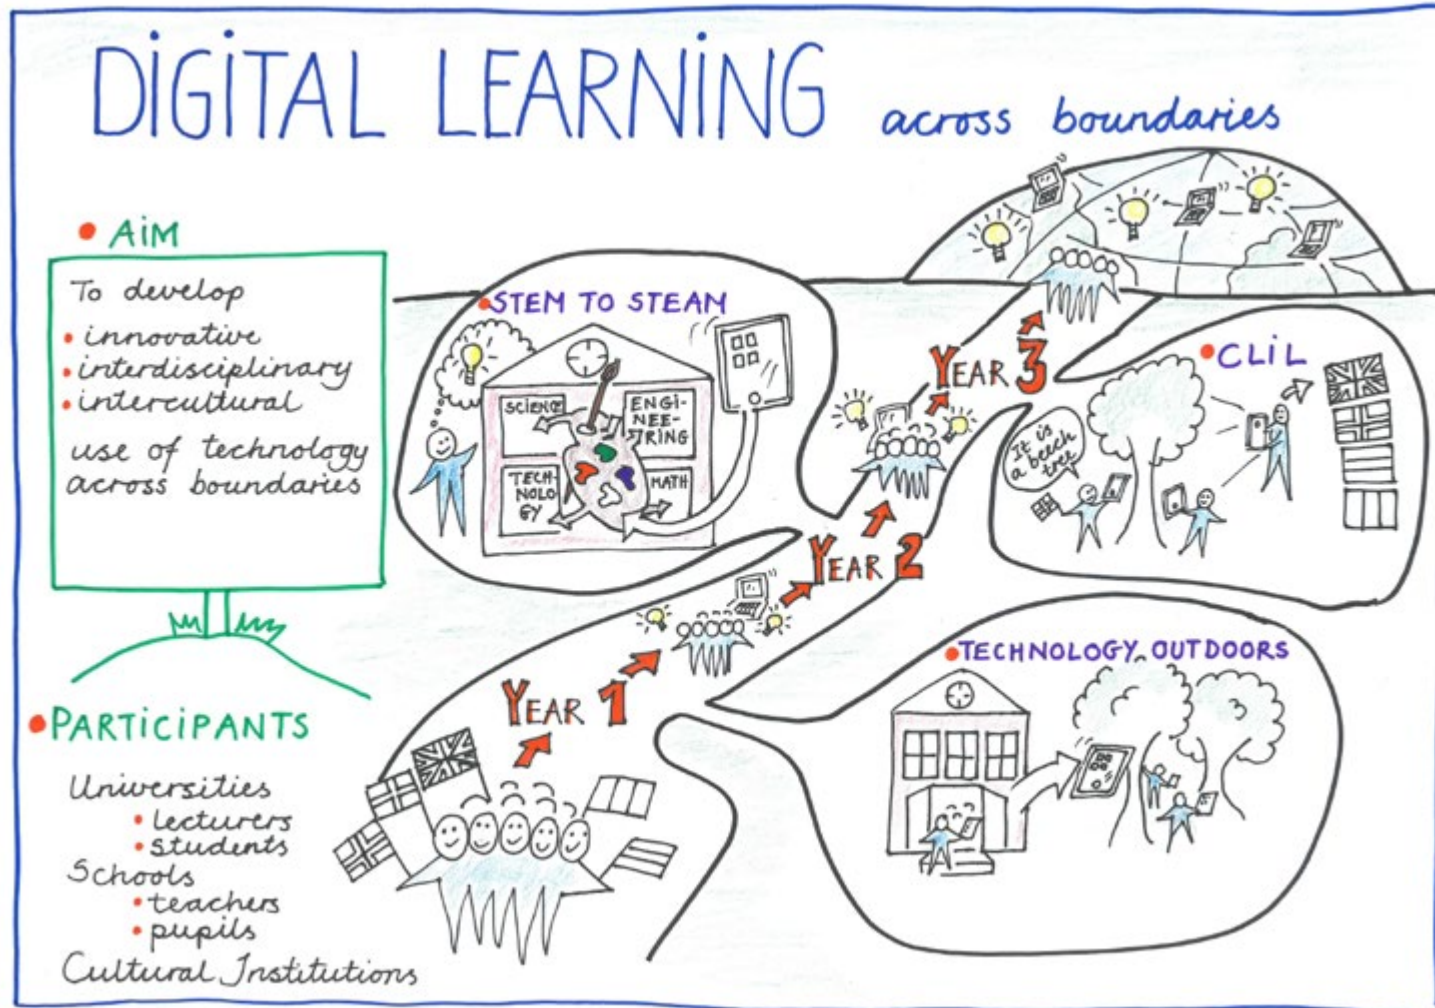 DIGITAL LEARNING across boundaries
AIM
To develop
innovative
interdisciplinary
intercultural
use of technology
across boundaries
PARTICIPANTS
Universities
lecturers
students
Schools
teachers
pupils
Cultural Institutions
STEM TO STEAM
SCIENCE
ENGI-
NEE-
RING
TECH-
NOLO
GY
MATH
YEAR 1
YEAR 2
YEAR 3
CLIL
It is
a beech
tree
TECHNOLOGY OUTDOORS